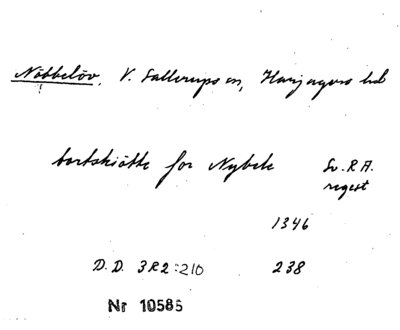 Nöbbelöv, V. Sallerups sn, Harjagers hd
bortskiötte for Nybele Sv. R A.
regest
1346
D. D. 3 R 2 : 210 238
Nr 10585